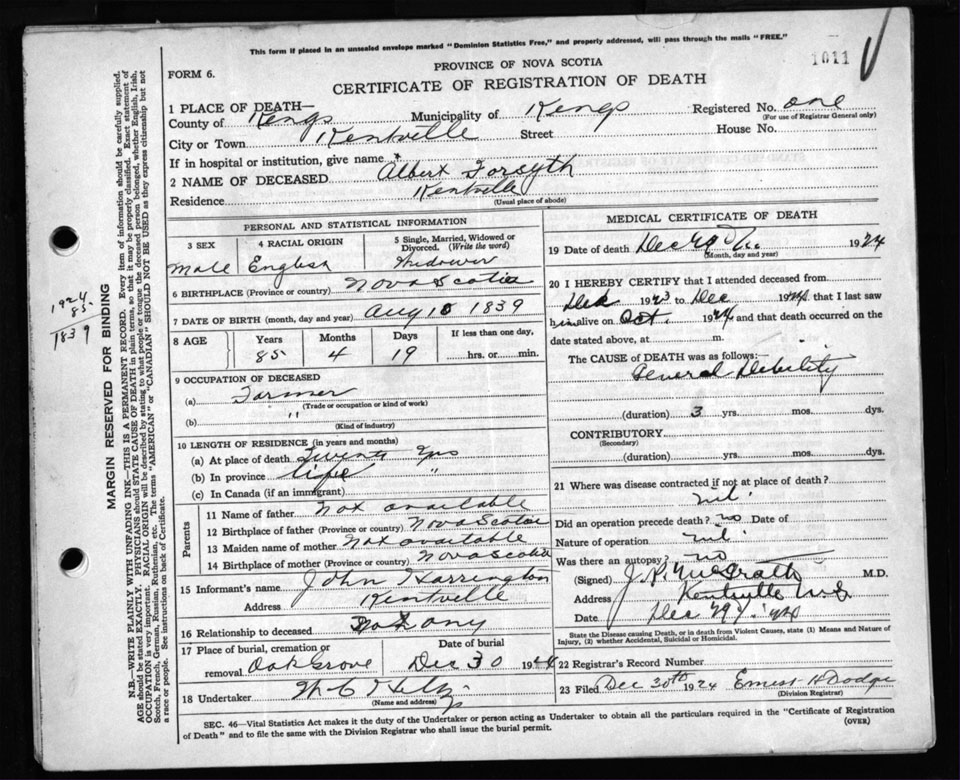 This form if placed in an unsealed envelope marked "Dominion Statistics Free," and properly addressed, will pass through the mails "FREE."
1011
FORM 6.
PROVINCE OF NOVA SCOTIA
CERTIFICATE OF REGISTRATION OF DEATH
1 PLACE OF DEATH—
County of Kings Municipality of Kings Registered No. one
(For use of Registrar General only)
City or Town Kentville Street House No.
If in hospital or institution, give name
2 NAME OF DECEASED Albert Forsyth
Residence Kentville
(Usual place of abode)
PERSONAL AND STATISTICAL INFORMATION
3 SEX 4 RACIAL ORIGIN 5 Single, Married, Widowed or Divorced. (Write the word)
Male English Widower
6 BIRTHPLACE (Province or country) Nova Scotia
7 DATE OF BIRTH (month, day and year) Aug 10 1839
8 AGE Years Months Days If less than one day,
85 4 19 hrs. or min.
9 OCCUPATION OF DECEASED
(a) Farmer
(Trade or occupation or kind of work)
(b) "
(Kind of industry)
10 LENGTH OF RESIDENCE (in years and months)
(a) At place of death yrs
(b) In province life "
(c) In Canada (if an immigrant)
Parents
11 Name of father Not available
12 Birthplace of father (Province or country) Nova Scotia
13 Maiden name of mother Not available
14 Birthplace of mother (Province or country) Nova Scotia
15 Informant's name John Harrington
Address Kentville
16 Relationship to deceased Not any
17 Place of burial, cremation or removal Oak Grove
Date of burial Dec 30 1924
18 Undertaker
(Name and address)
MEDICAL CERTIFICATE OF DEATH
19 Date of death Dec 1924
(Month, day and year)
20 I HEREBY CERTIFY that I attended deceased from
1923 to Dec 1924 that I last saw
him alive on Oct. 1924 and that death occurred on the
date stated above, at m.
The CAUSE OF DEATH was as follows:—
General Debility
(duration) 3 yrs. mos. dys.
CONTRIBUTORY
(Secondary)
(duration) yrs. mos. dys.
21 Where was disease contracted if not at place of death?
nil
Did an operation precede death? no Date of
Nature of operation nil
Was there an autopsy? no
(Signed) McGrath M.D.
Address Kentville N.S
Date Dec 29
State the Disease causing Death, or in death from Violent Causes, state (1) Means and Nature of
Injury, (2) whether Accidental, Suicidal or Homicidal.
22 Registrar's Record Number
23 Filed Dec 30th 1924 Ernest H Dodge
(Division Registrar)
SEC. 46—Vital Statistics Act makes it the duty of the Undertaker or person acting as Undertaker to obtain all the particulars required in the "Certificate of Registration
of Death" and to file the same with the Division Registrar who shall issue the burial permit.
(OVER)
1924
85
1839
MARGIN RESERVED FOR BINDING
N.B.—WRITE PLAINLY WITH UNFADING INK—THIS IS A PERMANENT RECORD. Every item of information should be carefully supplied.
AGE should be stated EXACTLY. PHYSICIANS should STATE CAUSE OF DEATH in plain terms, so that it may be properly classified. Exact statement of
OCCUPATION is very important. RACIAL ORIGIN will be described by stating to what people or tongue the deceased person belonged, whether English, Irish,
Scotch, French, German, Russian, Ruthenian, etc. The terms "AMERICAN" or "CANADIAN" SHOULD NOT BE USED as they express citizenship but not
a race or people. See instructions on back of Certificate.